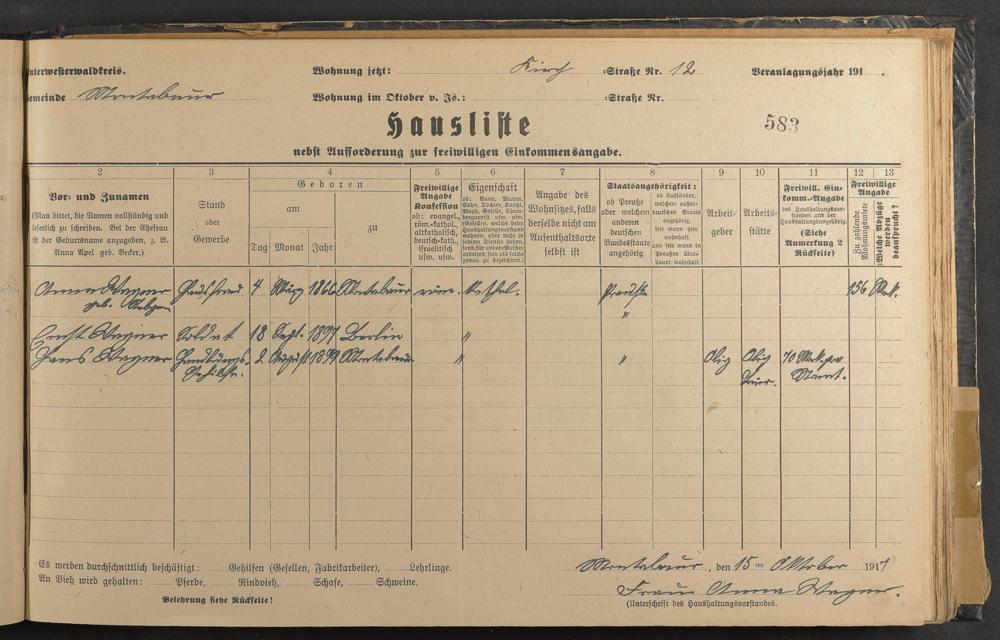 nterwesterwaldkreis.
Wohnung jetzt: Kirch =Straße Nr. 12
Veranlagungsjahr 191 .
emeinde Montabaur
Wohnung im Oktober v. Js.: =Straße Nr.
Hausliste
583
nebst Aufforderung zur freiwilligen Einkommensangabe.
2 3 4 5 6 7 8 9 10 11 12 13
Vor- und Zunamen
(Man bittet, die Namen vollständig und
leserlich zu schreiben. Bei der Ehefrau
ist der Geburtsname anzugeben, z. B.
Anna Apel geb. Becker.)
Stand
oder
Gewerbe
Geboren
am
zu
Tag Monat Jahr
Freiwillige
Angabe
Konfession
ob: evangel.,
röm.-kathol.,
altkatholisch,
deutsch-kath.,
israelitisch
usw. usw.
Eigenschaft
ob: Vater, Mutter,
Sohn, Tochter, Knecht,
Magd, Geselle,
Angabe des
Wohnsitzes, falls
derselbe nicht am
Aufenthaltsorte
selbst ist
Staatsangehörigkeit:
ob Preuße
oder welchem
anderen
deutschen
Bundesstaate
angehörig
ob Ausländer,
welchem außer-
deutschen Staate
angehörig,
seit wann hier
wohnhaft
und
seit wann in
Preußen über-
haupt wohnhaft
Arbeit-
geber
Arbeits-
stätte
Freiwill. Ein-
komm.-Angabe
des Haushaltungsvor-
standes und der
Haushaltungsangehörig.
(Siehe
Anmerkung 2
Rückseite)
Freiwillige
Angabe
Zu zahlende
Wohnungsmiete
Welche Abzüge
werden
beansprucht?
Anna Wagner 4 März 1866 Montabaur röm. kathol. Preuße 156 Mk.
geb.
Ernst Wagner Soldat 18 Sept. 1897 Berlin " "
Hans Wagner Handlungs- 2 August 1899 Montabaur " " 70 Mk. pro
Gehilfe. Monat.
Es werden durchschnittlich beschäftigt: Gehilfen (Gesellen, Fabrikarbeiter), Lehrlinge.
An Vieh wird gehalten: Pferde, Rindvieh, Schafe, Schweine.
Belehrung siehe Rückseite!
Montabaur, den 15ten Oktober 1917
Frau Anna Wagner.
(Unterschrift des Haushaltungsvorstandes.